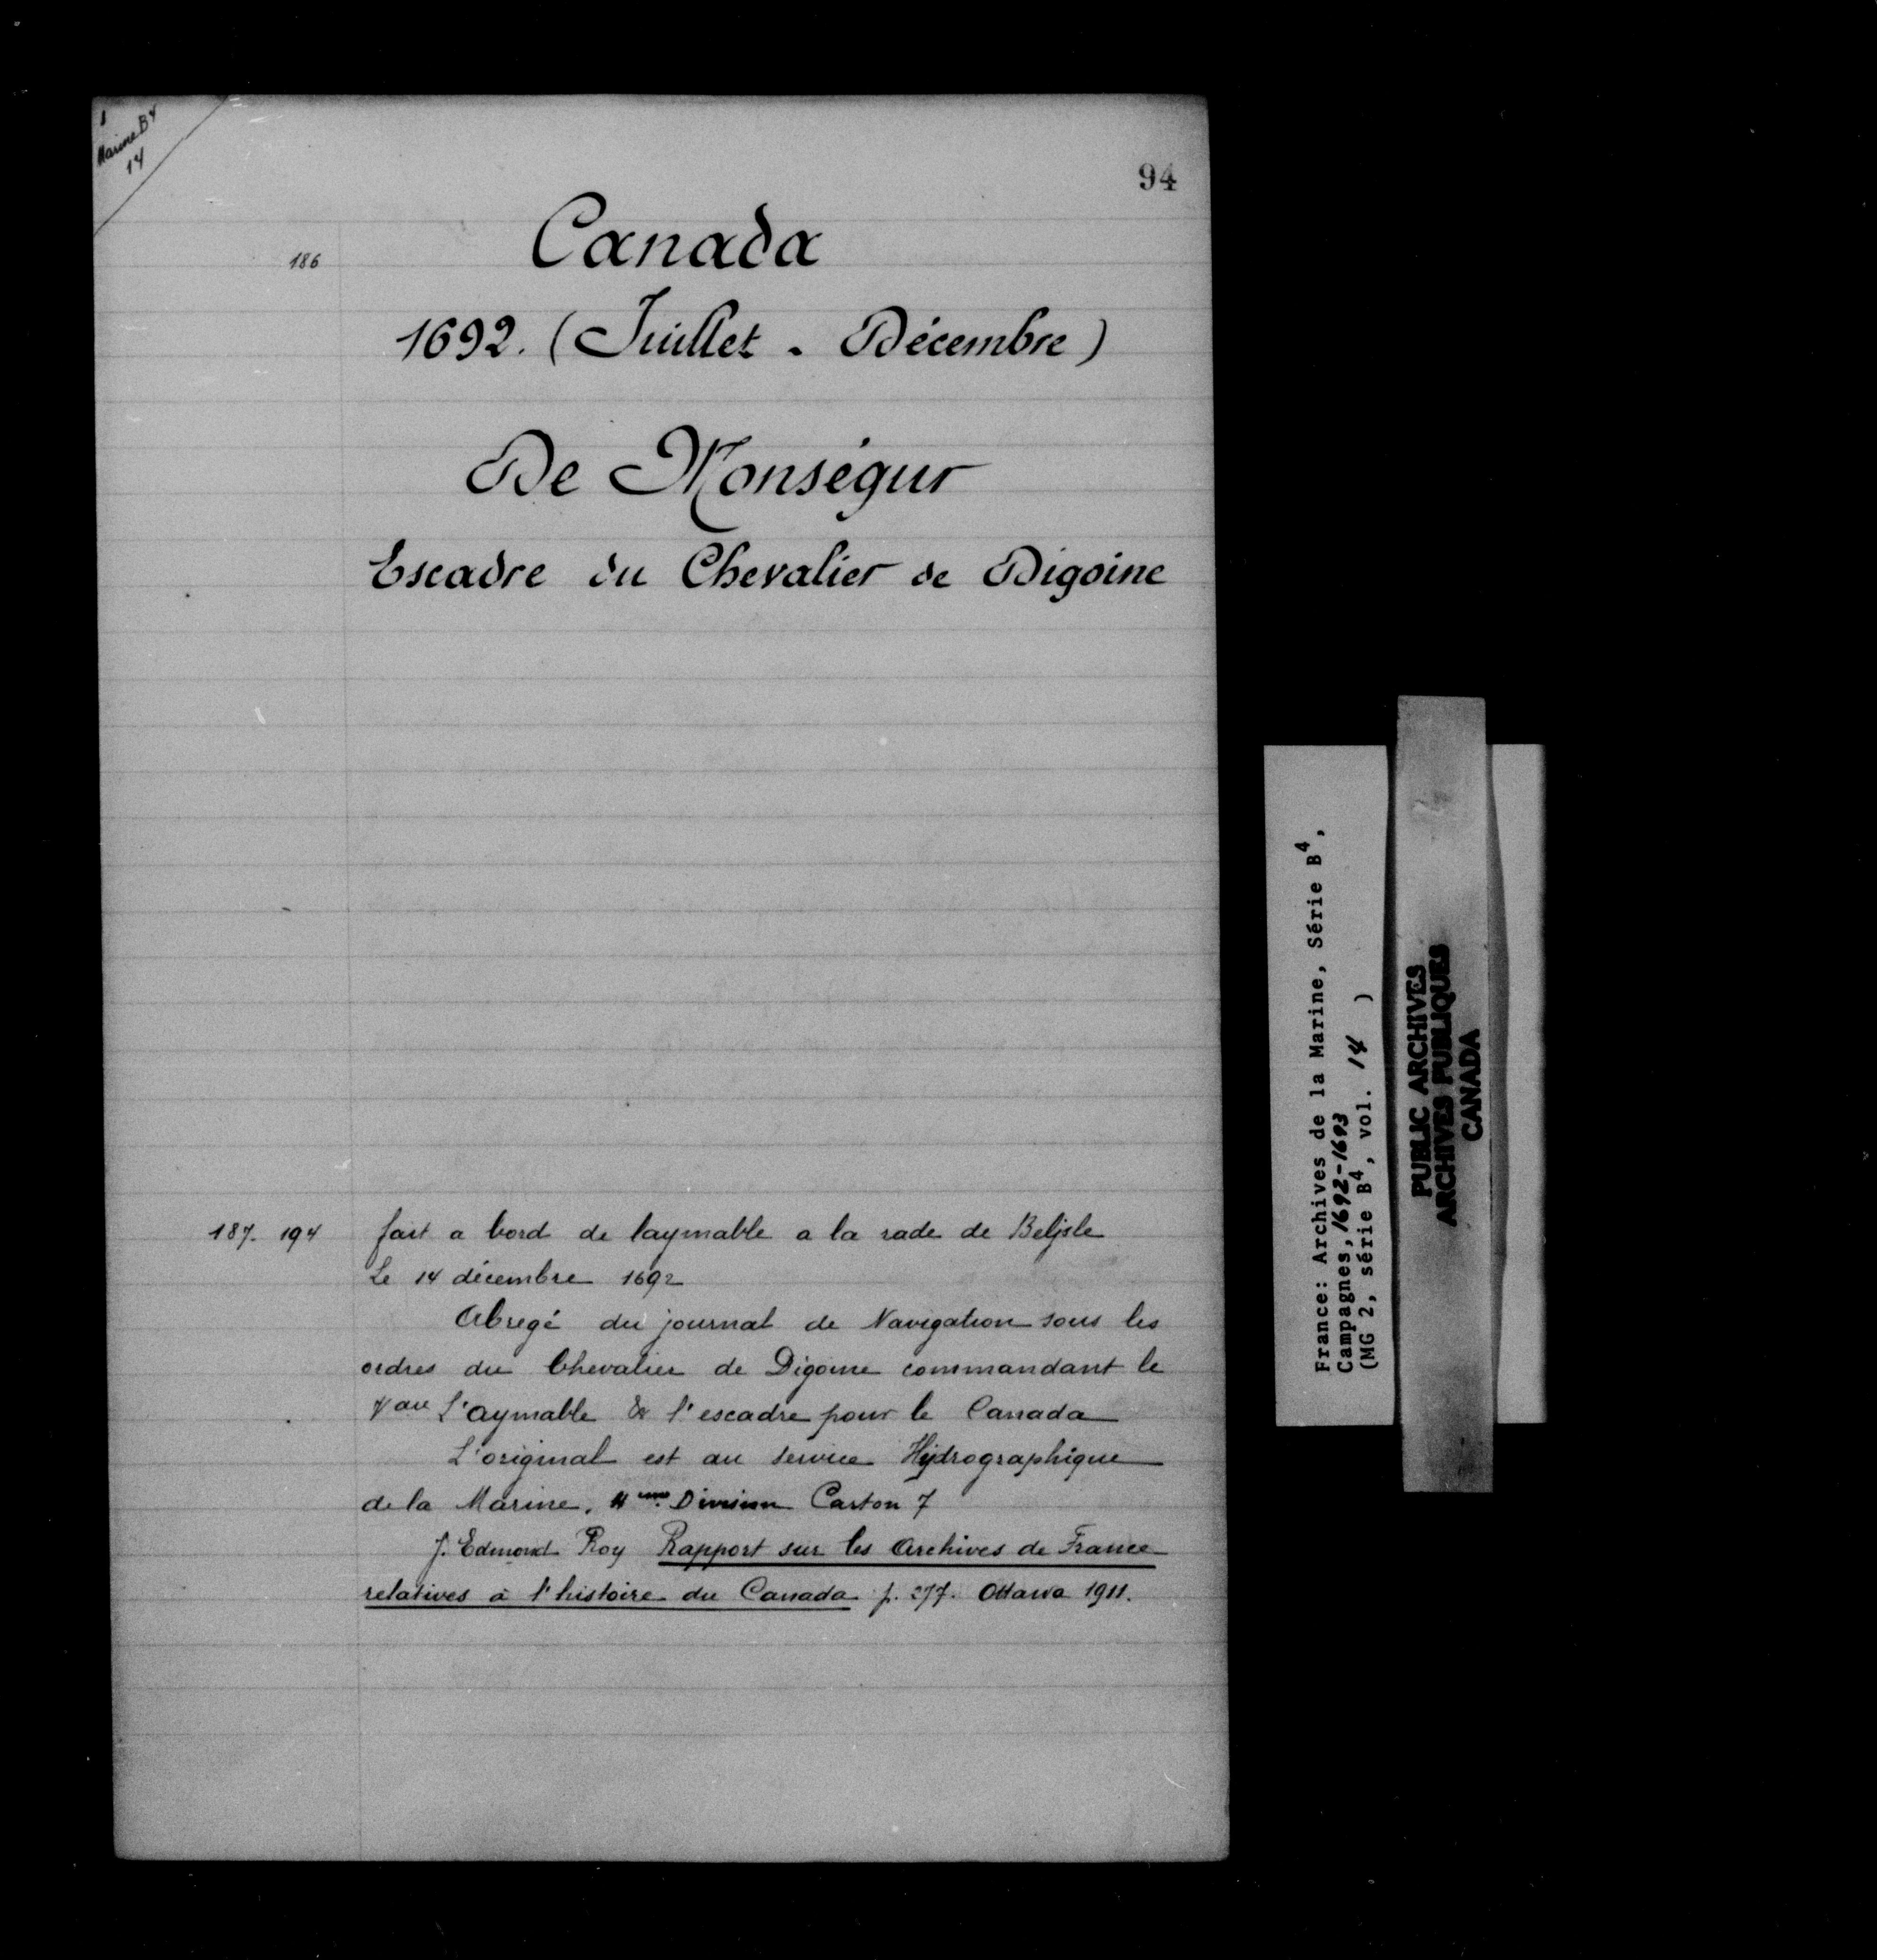 1
Marine B4
14
94
186
Canada
1692. (Juillet - Décembre)
De Monségur
Escadre du Chevalier de Digoine
187. 194
fait a bord de laymable a la rade de Belisle
Le 14 décembre 1692
Abregé du journal de Navigation sous les
ordres du Chevalier de Digoine commandant le
Vau L'aymable & l'escadre pour le Canada
L'original est au service Hydrographique
de la Marine. Division Carton 7
J. Edmond Roy Rapport sur les Archives de France
relatives à l'histoire du Canada p. 277. Ottawa 1911.
France: Archives de la Marine, Série B4,
Campagnes, 1692-1693
(MG 2, série B4, vol. 14 )
PUBLIC ARCHIVES
ARCHIVES PUBLIQUES
CANADA